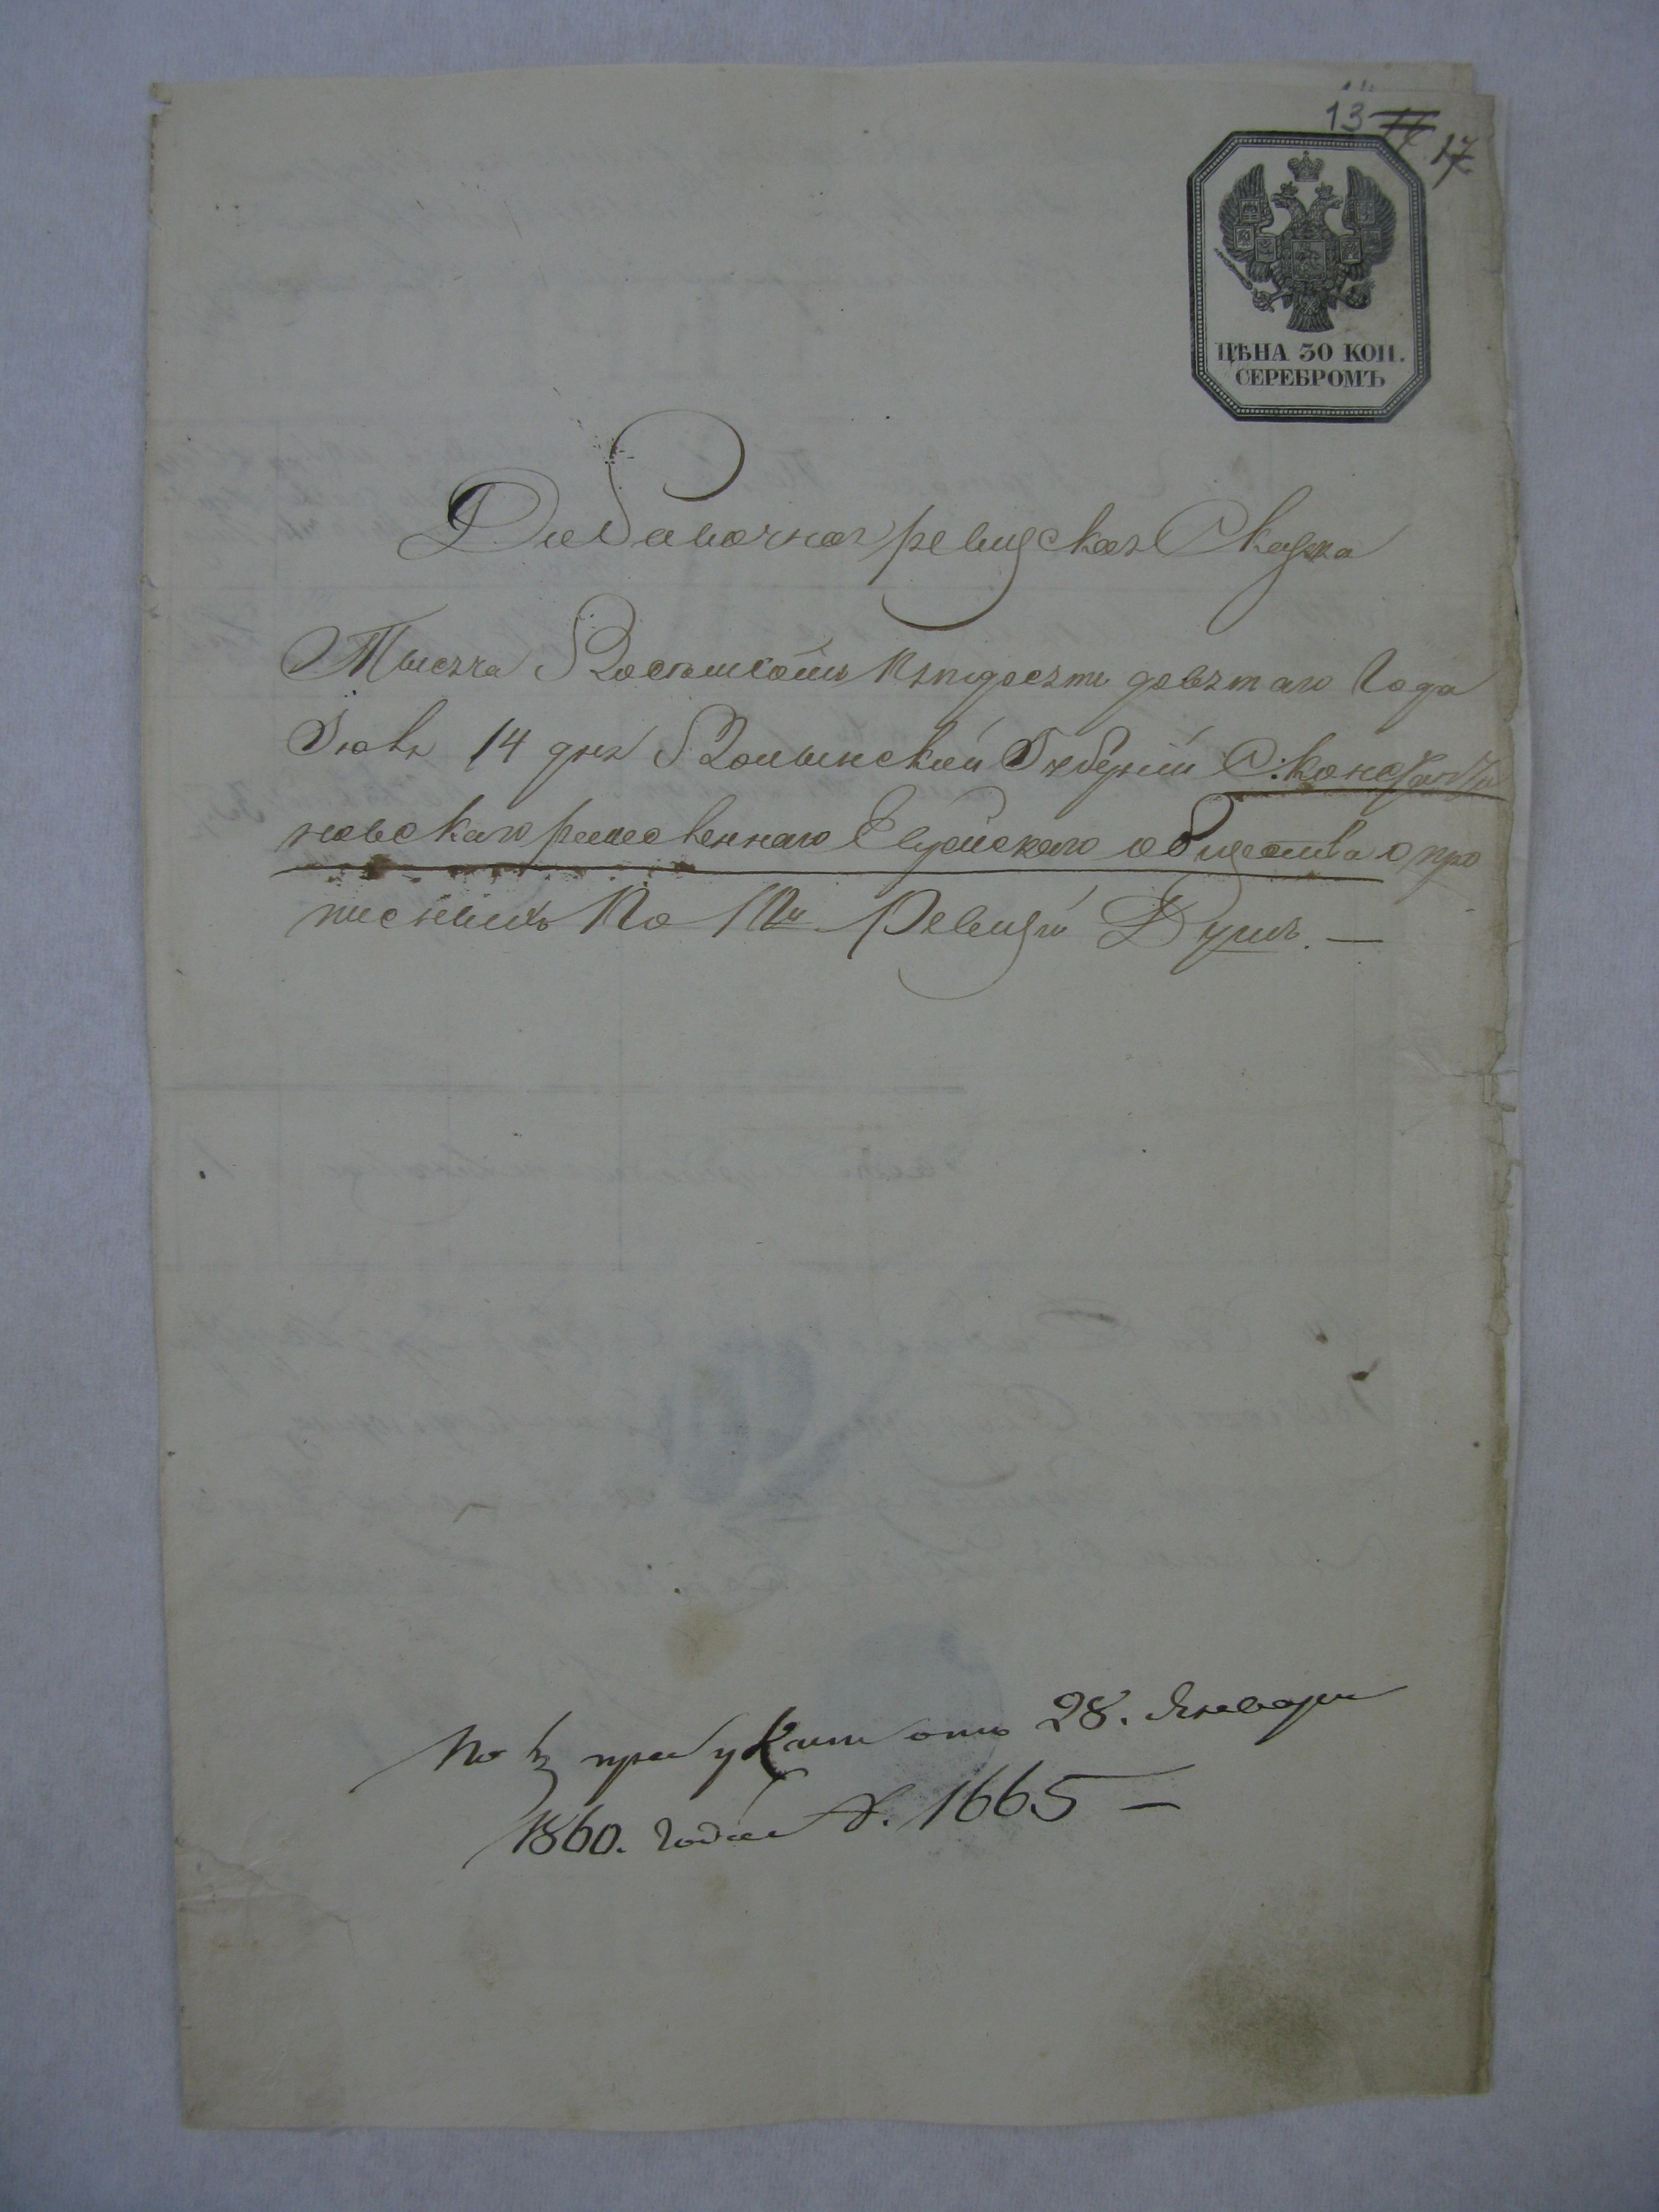 13 11 17
ЦѢНА 30 КОП.
СЕРЕБРОМЪ
Добавочная ревизская Сказка
Тысяча Восемсотъ Пятдесятъ девятаго Года
Іюня 14 дня Волынской Губерніи С:Константи
новскаго ремесленнаго Еврейскаго общества о про
писныхъ По 10й Ревизіи Душъ. —
По отъ 28. Января
1860. года №. 1665 —